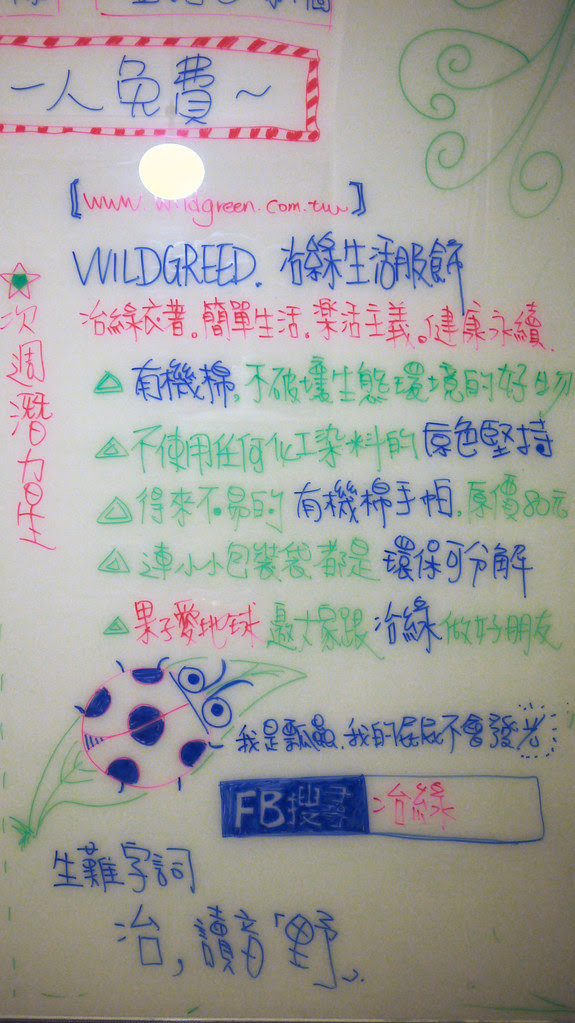 一人免費~
[www.wildgreen.com.tw]
WILDGREED. 冶綠生活服飾
次週潛力星
冶綠衣著。簡單生活。樂活主義。健康永續.
△ 有機棉,不破壞生態環境的好物
△ 不使用任何化工染料的原色堅持
△ 得來不易的 有機棉手帕,原價80元
△ 連小小包裝袋都是 環保可分解
△ 果子愛地球 邀大家跟 冶綠 做好朋友
我是瓢蟲,我的屁屁不會發光
FB搜尋 冶綠
生難字詞
冶,讀音「野」